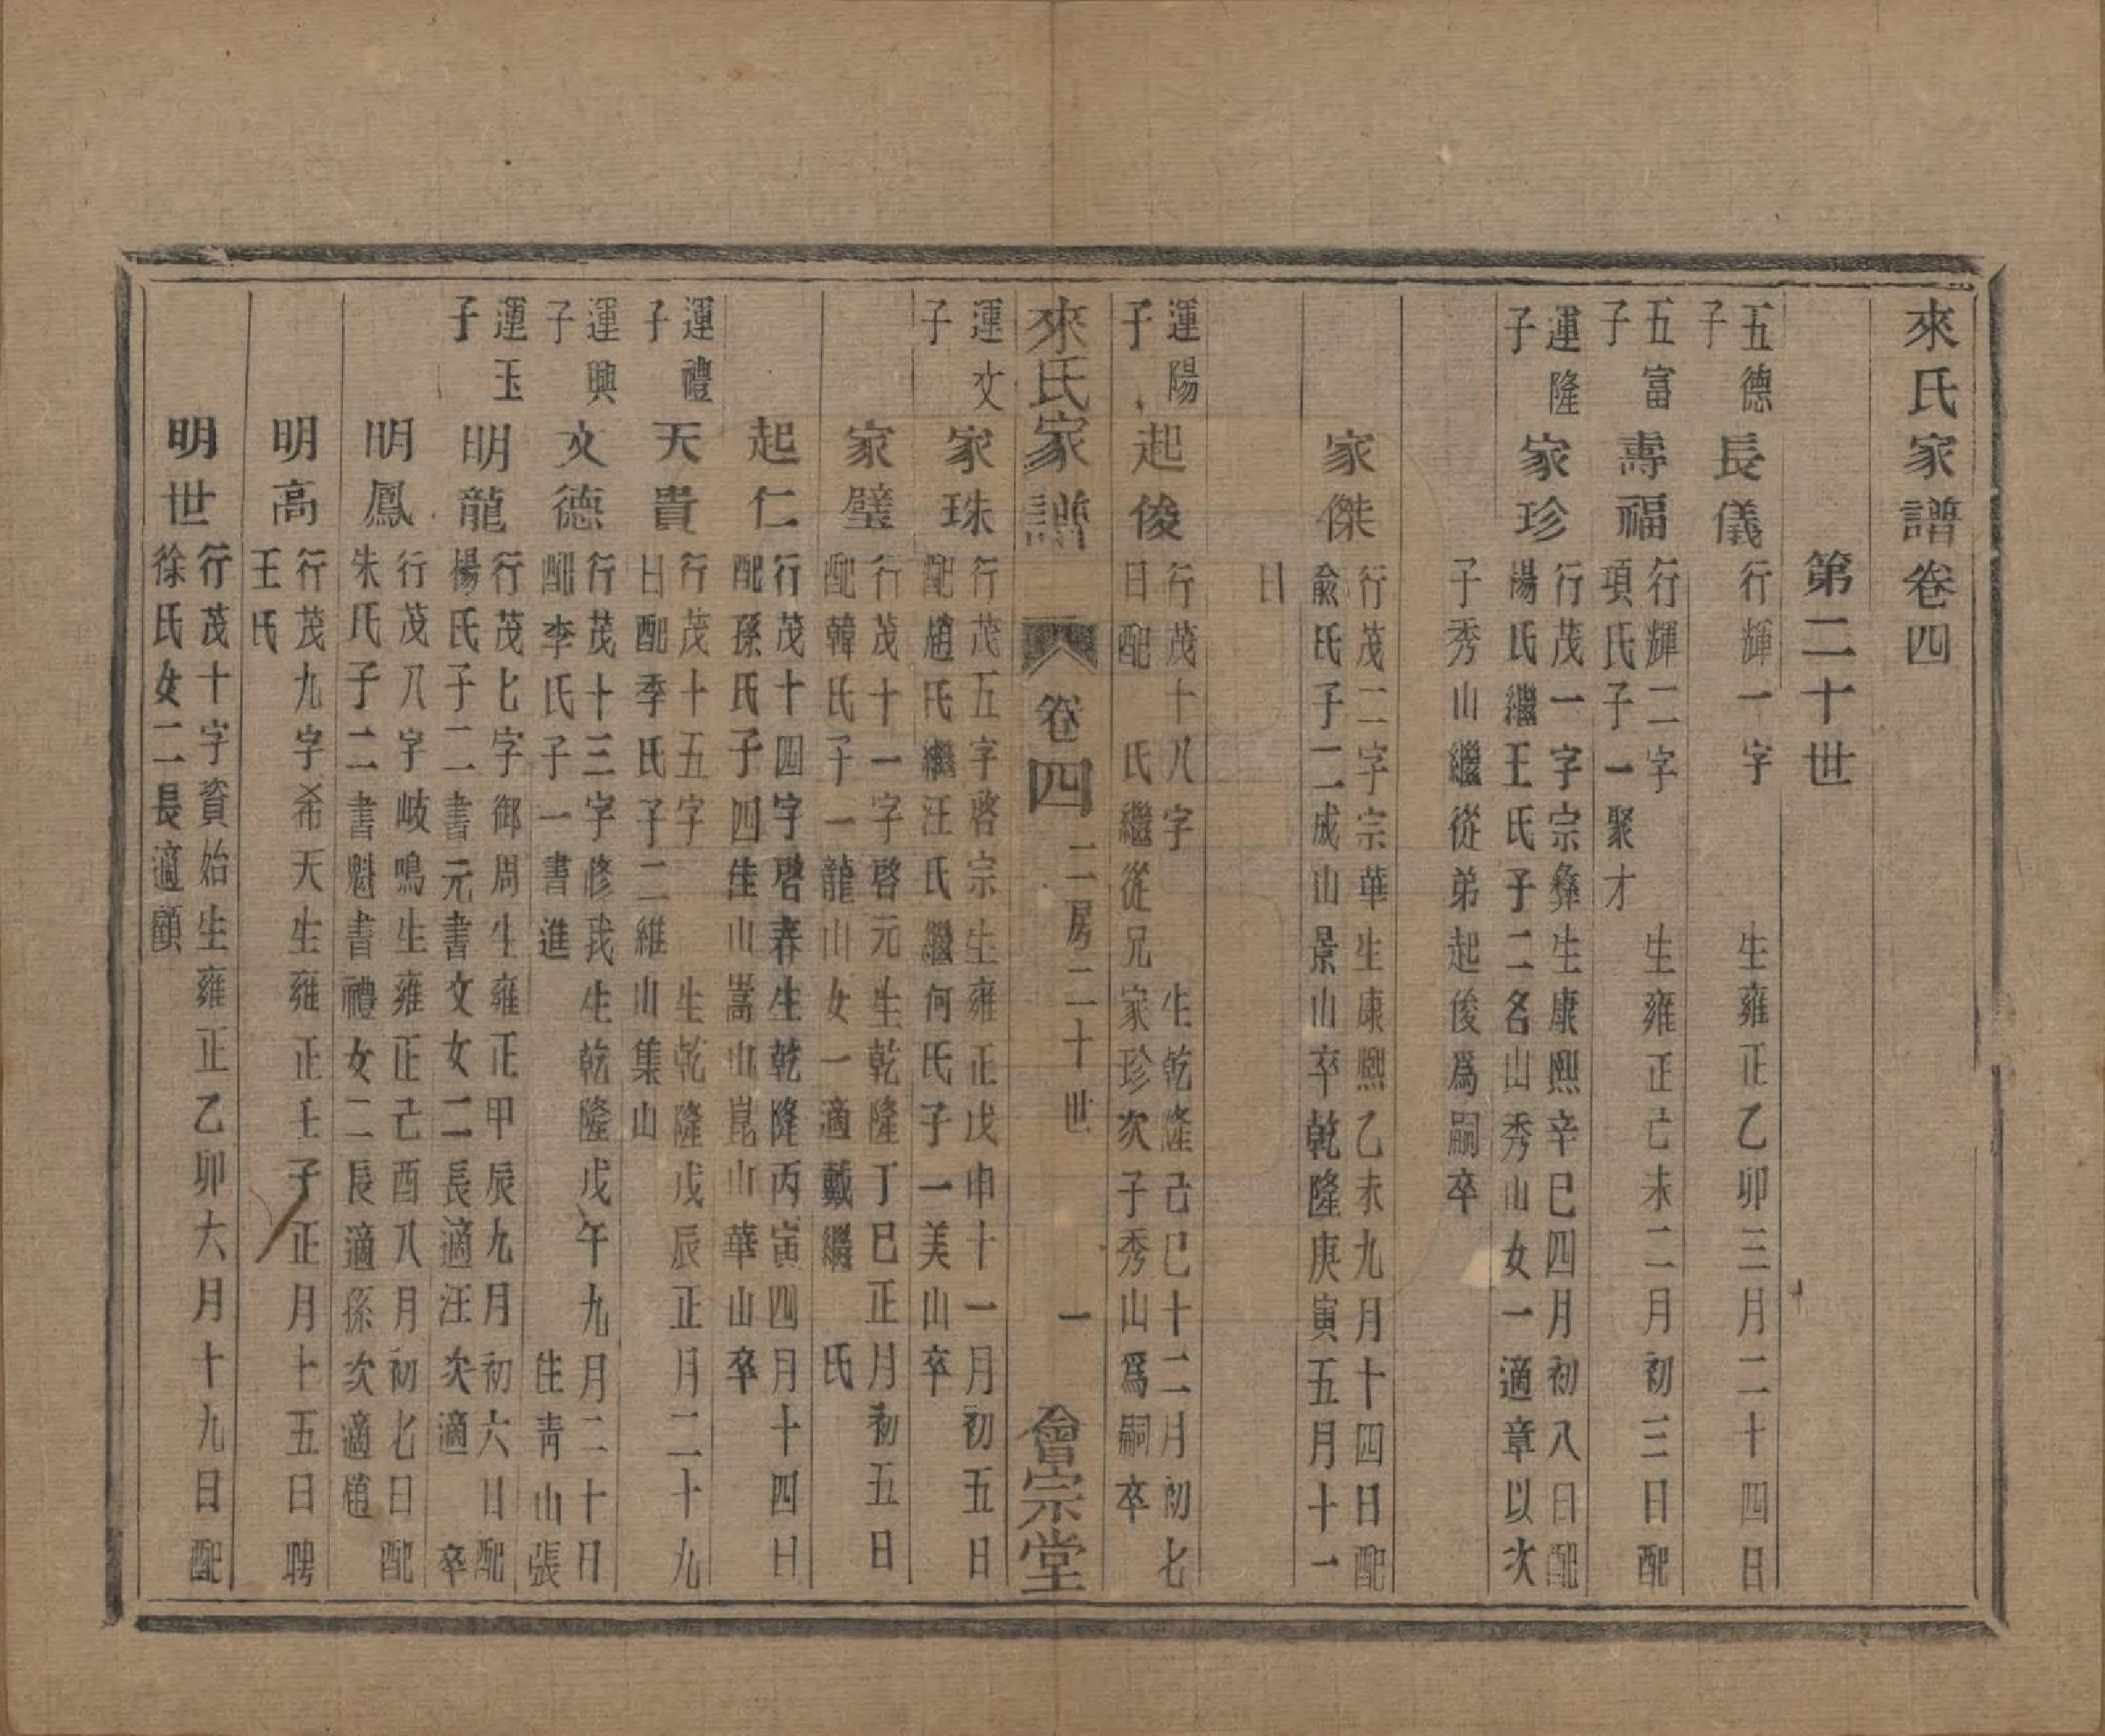 來氏家譜卷四
第二十世
五德子
長儀
行輝一字　生雍正乙卯三月二十四日
五富子
壽福
行輝二字　生雍正己未二月初三日配
項氏子一聚才
運隆子
家珍
行茂一字宗彝生康熙辛巳四月初八日配
楊氏繼王氏子二名山秀山女一適章以次
子秀山繼從弟起俊爲嗣卒
家傑
行茂二字宗華生康熙乙未九月十四日配
兪氏子二成山景山卒乾隆庚寅五月十一
日
運陽子
起俊
行茂十八字　生乾隆己巳十二月初七
日配　氏繼從兄家珍次子秀山爲嗣卒
來氏家譜　卷四　二房二十世　一　會宗堂
運文子
家珠
行茂五字啓宗生雍正戊申十一月初五日
配趙氏繼汪氏繼何氏子一美山卒
家璧
行茂十一字啓元生乾隆丁巳正月初五日
配韓氏子一龍山女一適戴繼　氏
起仁
行茂十四字啓春生乾隆丙寅四月十四日
配孫氏子四佳山嵩山崑山華山卒
運禮子
天貴
行茂十五字　生乾隆戊辰正月二十九
日配季氏子二維山集山
運興子
文德
行茂十三字修我生乾隆戊午九月二十日
配李氏子一書進　住靑山張
運玉子
明龍
行茂七字御周生雍正甲辰九月初六日配
楊氏子二書元書文女二長適汪次適　卒
明鳳
行茂八字岐鳴生雍正己酉八月初七日配
朱氏子二書魁書禮女二長適孫次適趙
明高
行茂九字希天生雍正壬子正月十五日聘
王氏
明世
行茂十字資始生雍正乙卯六月十九日配
徐氏女二長適顧